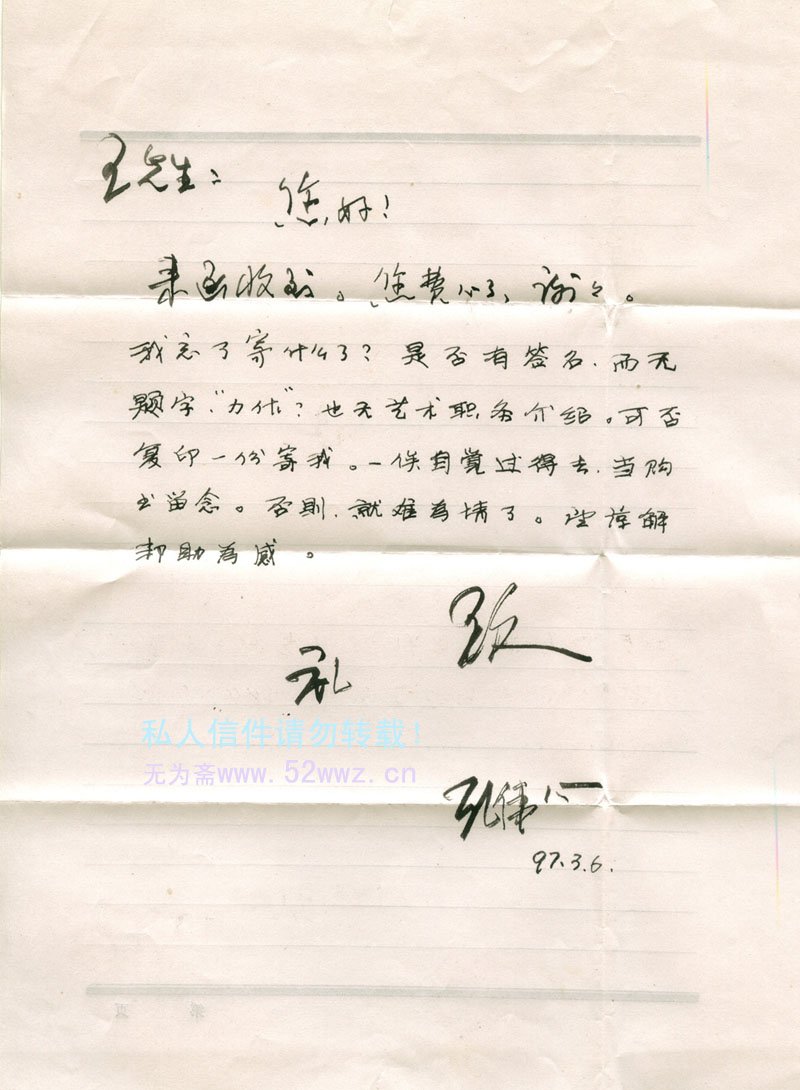 王先生：
您好！
来函收到。您费心了，谢々。
我忘了寄什么了？是否有签名，而无
题字"力作"？也无艺术职务介绍。可否
复印一份寄我。一俟自觉过得去，当购
出留念。否则，就难为情了。望谅解
帮助为感。
致
礼
私人信件请勿转载！
无为斋www.52wwz.cn
孔伟
97.3.6.
页 第